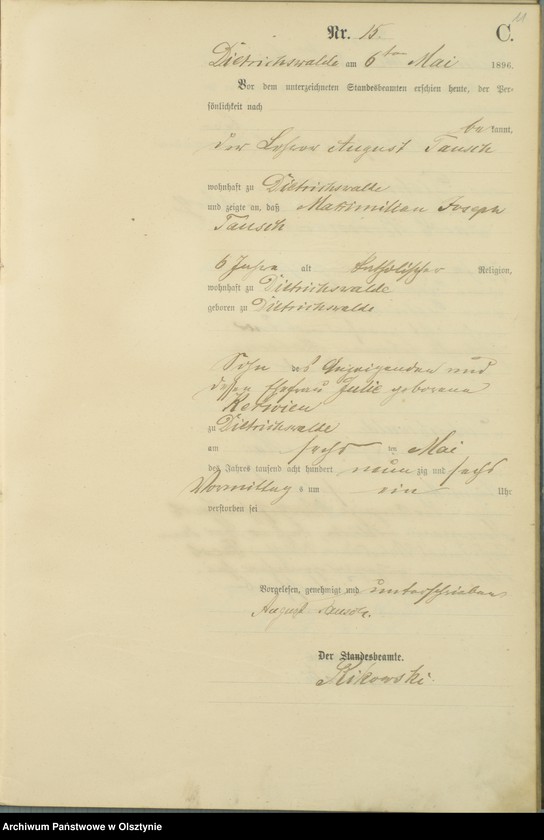 11
Nr. 15. C.
Dietrichswalde am 6ten Mai 1896.
Vor dem unterzeichneten Standesbeamten erschien heute, der Per-
sönlichkeit nach
bekannt,
der Lehrer August Tausch
wohnhaft zu Dietrichswalde
und zeigte an, daß Maximilian Joseph
Tausch
6 Jahre alt katholischer Religion,
wohnhaft zu Dietrichswalde
geboren zu Dietrichswalde
Sohn des Anzeigenden und
dessen Ehefrau Julie geborene
zu Dietrichswalde
am sechsten Mai
des Jahres tausend acht hundert neunzig und sechs
Vormittags um ein Uhr
verstorben sei
Vorgelesen, genehmigt und unterschrieben
August Tausch.
Der Standesbeamte.
Rikowski.
Archiwum Państwowe w Olsztynie